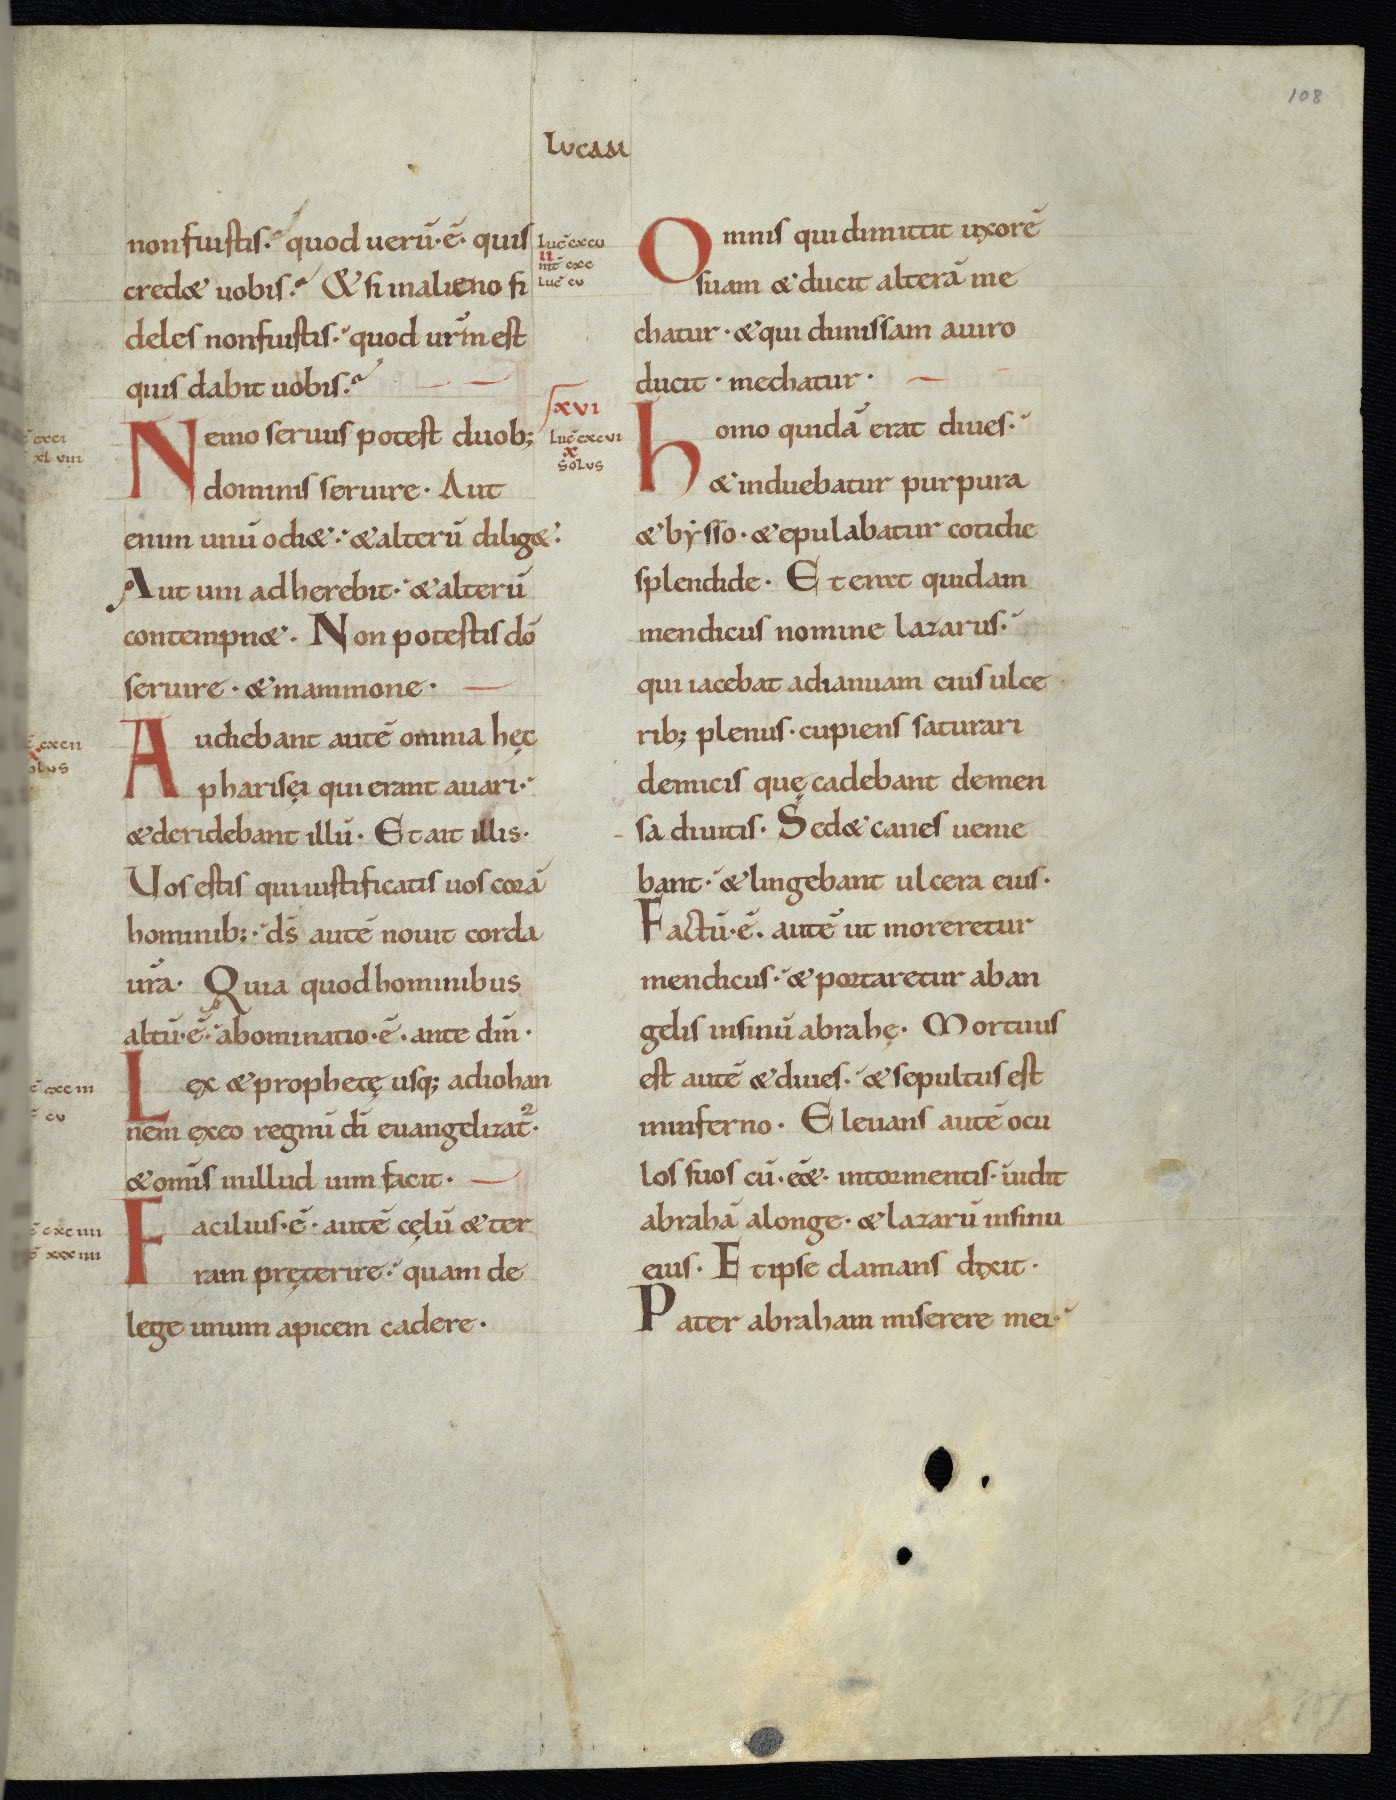 108
LUCAM
non fuistis. quod ueru̅·e̅· quis
cred& uobis. & si in alieno fi
deles non fuistis. quod ur̅m est
quis dabit uobis.
Nemo seruus potest duob;
dominis seruire. Aut
enim unu̅ odi&. & alteru̅ dilig&.
Aut uni adherebit. & alteru̅
contempn&. Non potestis do̅
seruire. & mammone.
Audiebant aute̅ omnia hęc
pharisęi qui erant auari.
& deridebant illu̅. Et ait illis.
Uos estis qui iustificatis uos cora̅
hominib;. ds̅ aute̅ nouit corda
ur̅a. Quia quod hominibus
altu̅·e̅· abominatio·e̅· ante dm̅.
Lex & prophetę usq; ad iohan
nem ex eo regnu̅ di̅ euangelizat᷑.
& om̅s in illud uim facit.
Facilius·e̅· aute̅ cęlu̅ & ter
ram pręterire. quam de
lege unum apicem cadere.
luc̅ cxcv
II
mt̅ cxc
luc̅ cv
XVI
luc̅ cxcvi
X
SOLVS
cxci
xlviii
cxcii
olvs
cxciii
cv
cxciiii
xxxiiii
Omnis qui dimittit uxore̅
suam & ducit altera̅ me
chatur. & qui dimissam a uiro
ducit. mechatur.
homo quida̅ erat diues.
& induebatur purpura
& bysso. & epulabatur cotidie
splendide. Et erat quidam
mendicus nomine lazarus.
qui iacebat ad ianuam eius ulce
rib; plenus. cupiens saturari
de micis quę cadebant de men
sa diuitis. Sed & canes uenie
bant. & lingebant ulcera eius.
Factu̅·e̅. aute̅ ut moreretur
mendicus. & portaretur ab an
gelis in sinu̅ abrahę. Mortuus
est aute̅ & diues. & sepultus est
in inferno. Eleuans aute̅ ocu
los suos cu̅·e̅&· in tormentis. uidit
abraha̅ a longe. & lazaru̅ in sinu
eius. Et ipse clamans dixit.
Pater abraham miserere mei.